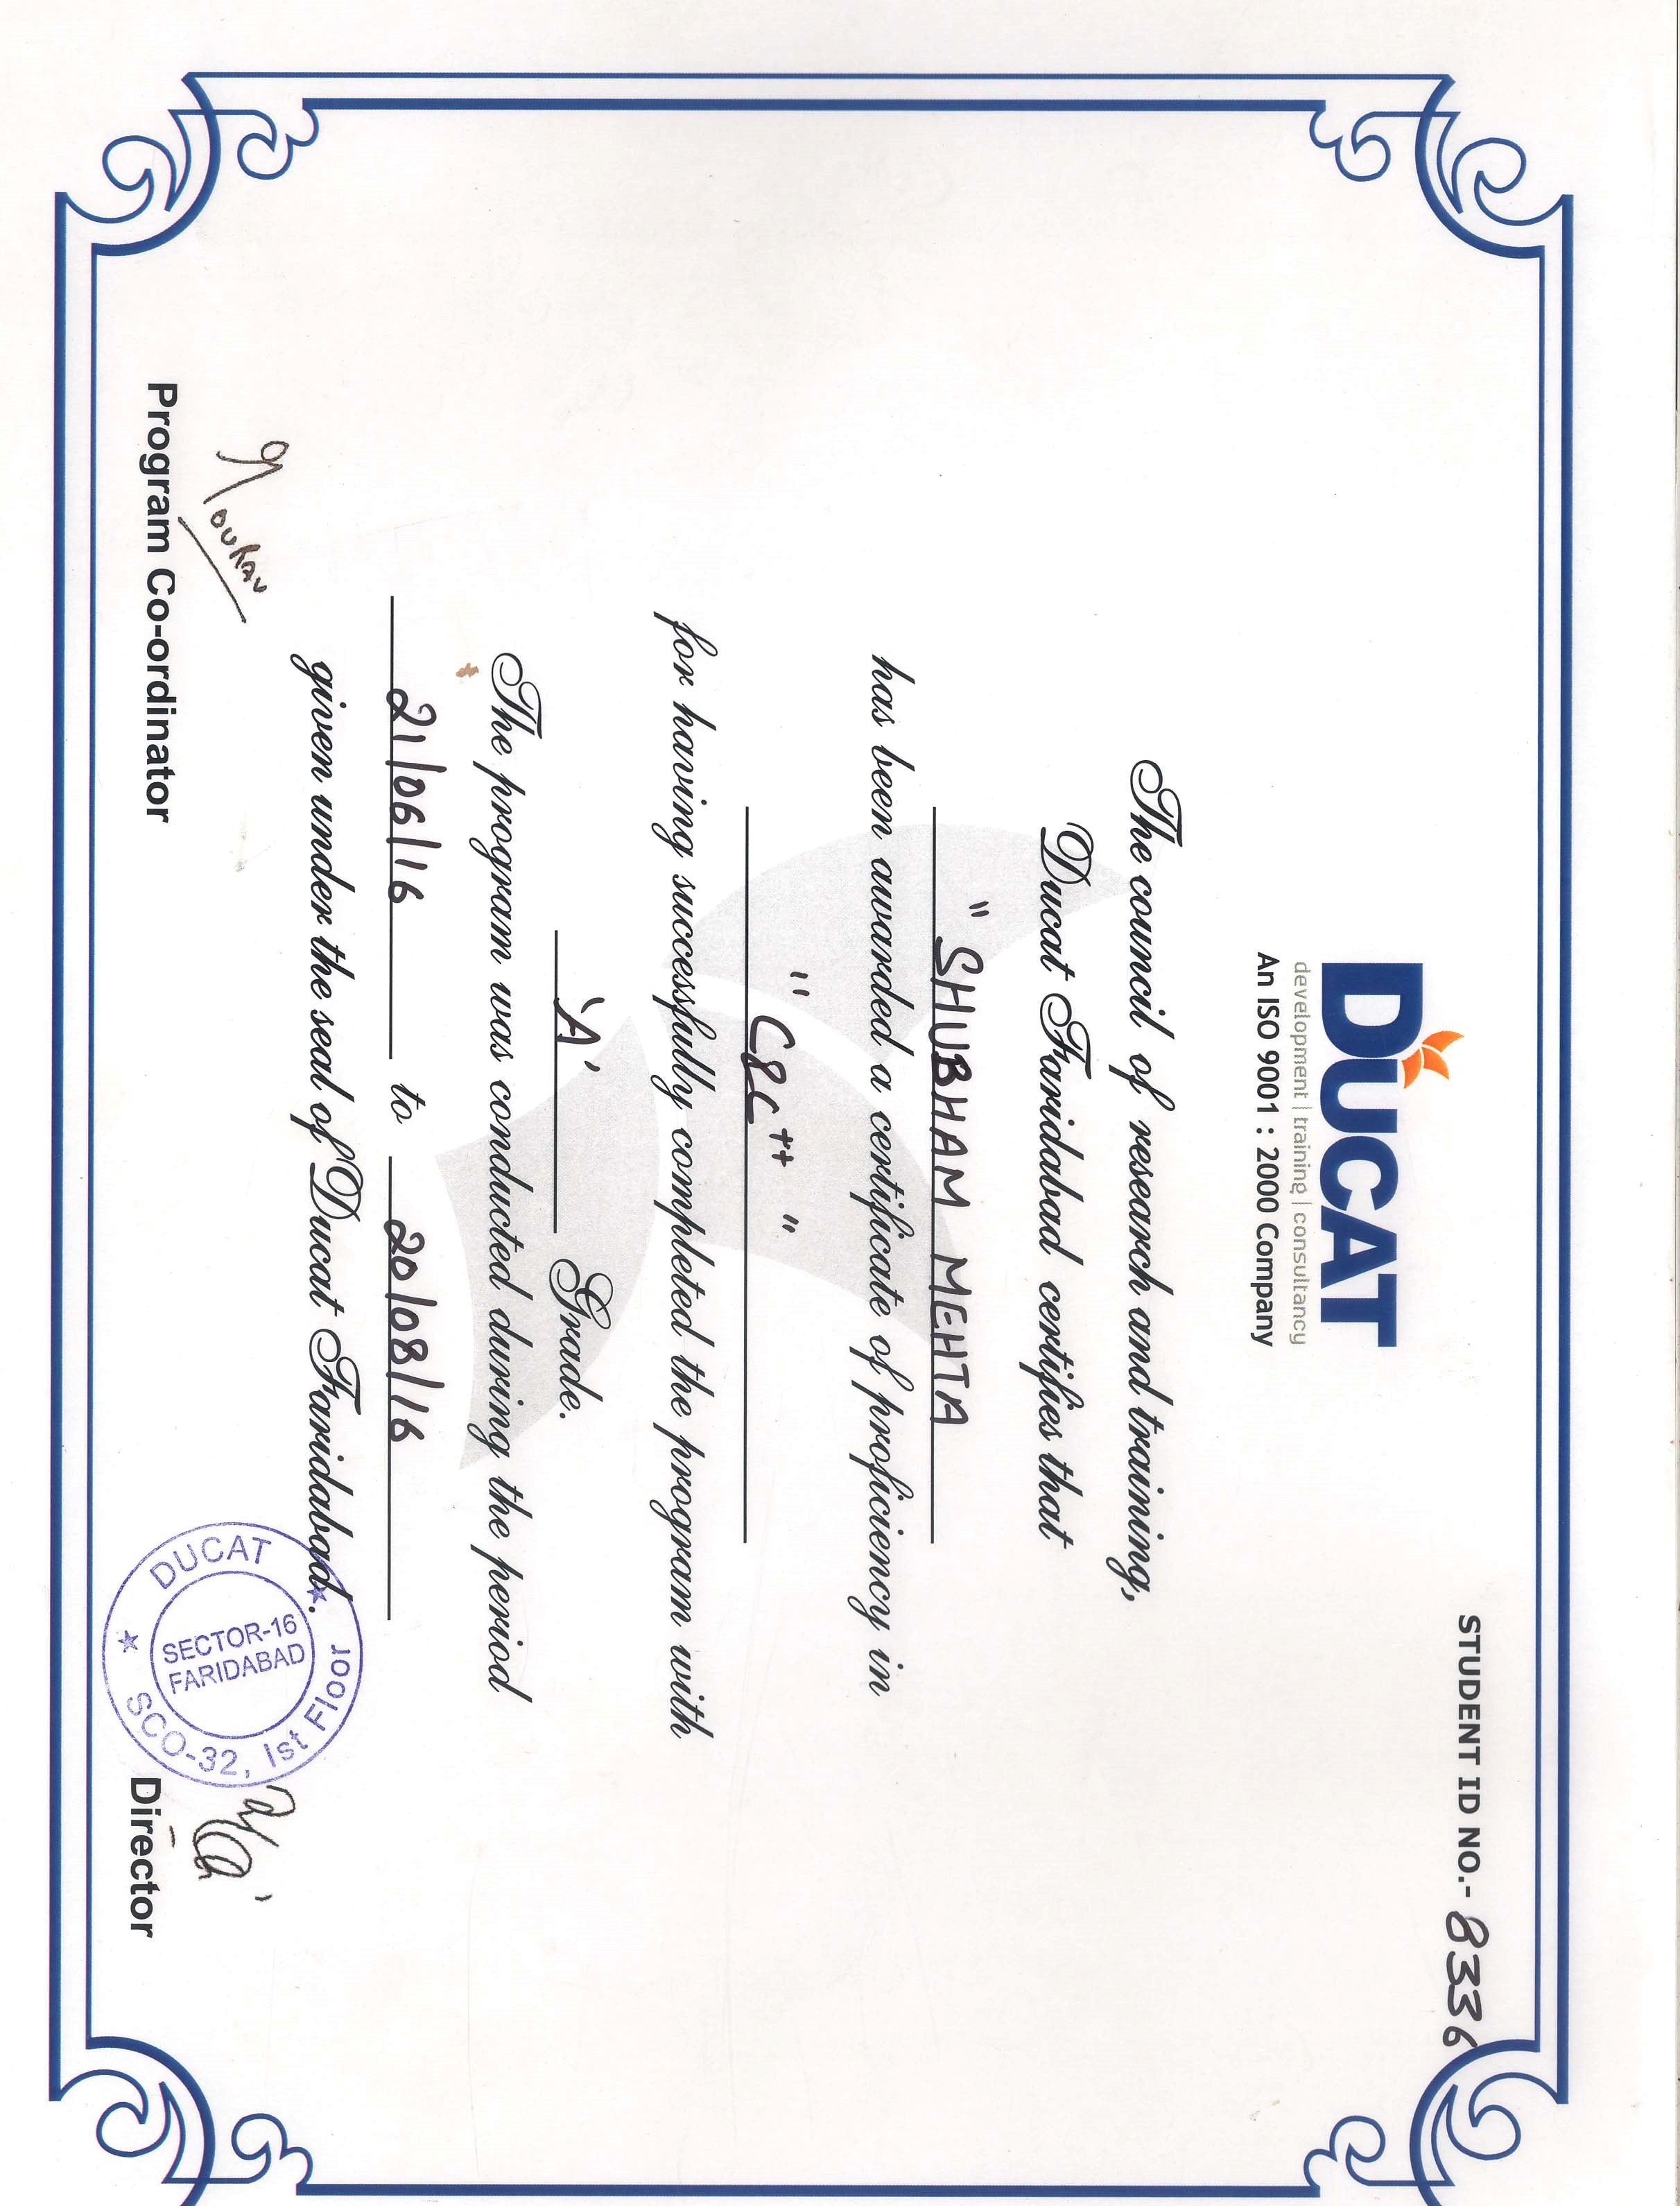 STUDENT ID NO.- 8336
DUCAT
development | training | consultancy
An ISO 9001 : 2000 Company
The council of research and training,
Ducat Faridabad certifies that
" SHUBHAM MEHTA
has been awarded a certificate of proficiency in
" C&C++ "
for having successfully completed the program with
'A' Grade.
The program was conducted during the period
21/06/16 to 20/08/16
given under the seal of Ducat Faridabad.
DUCAT
SCO-32, 1st Floor
SECTOR-16
FARIDABAD
Program Co-ordinator
Director